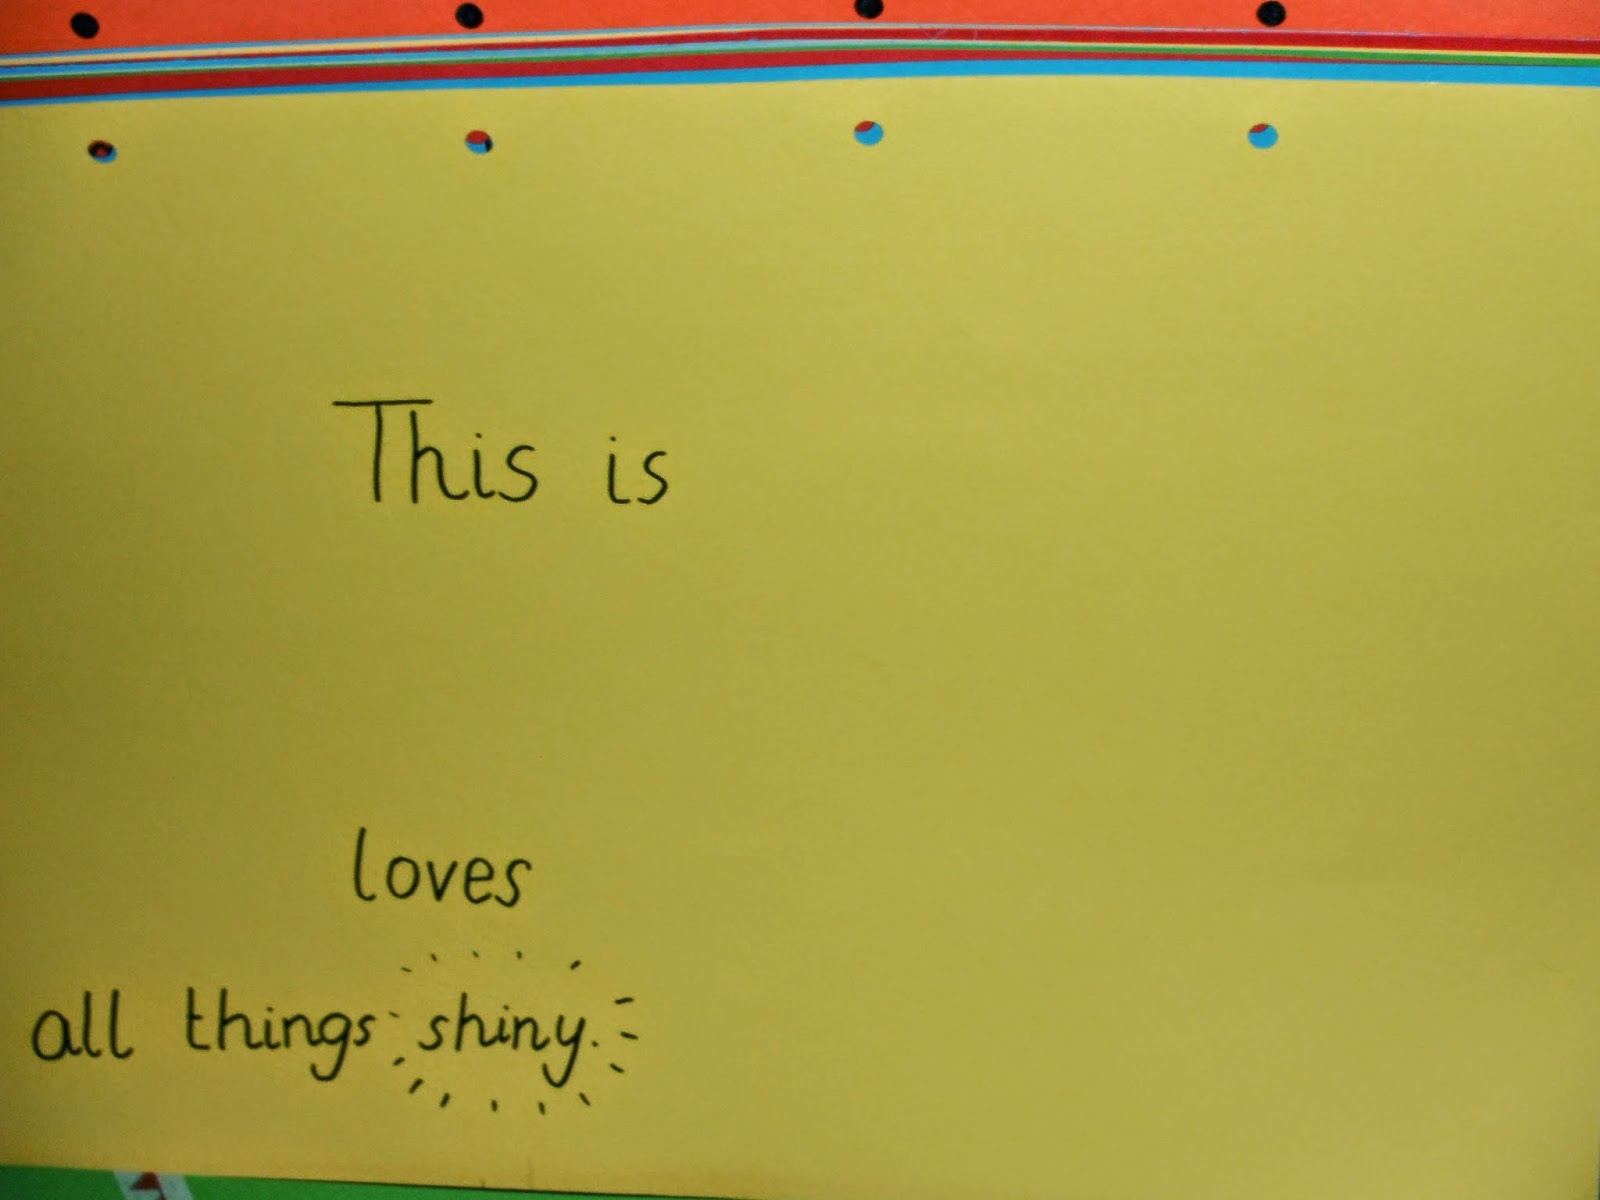 This is
loves
all things shiny.